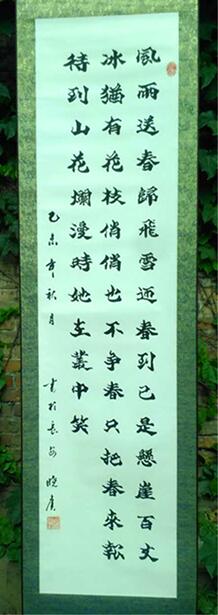 風雨送春歸飛雪迎春到已是懸崖百丈
冰猶有花枝俏俏也不争春只把春來報
待到山花爛漫時她在叢中笑
乙未年秋月 书於長安 曉虎